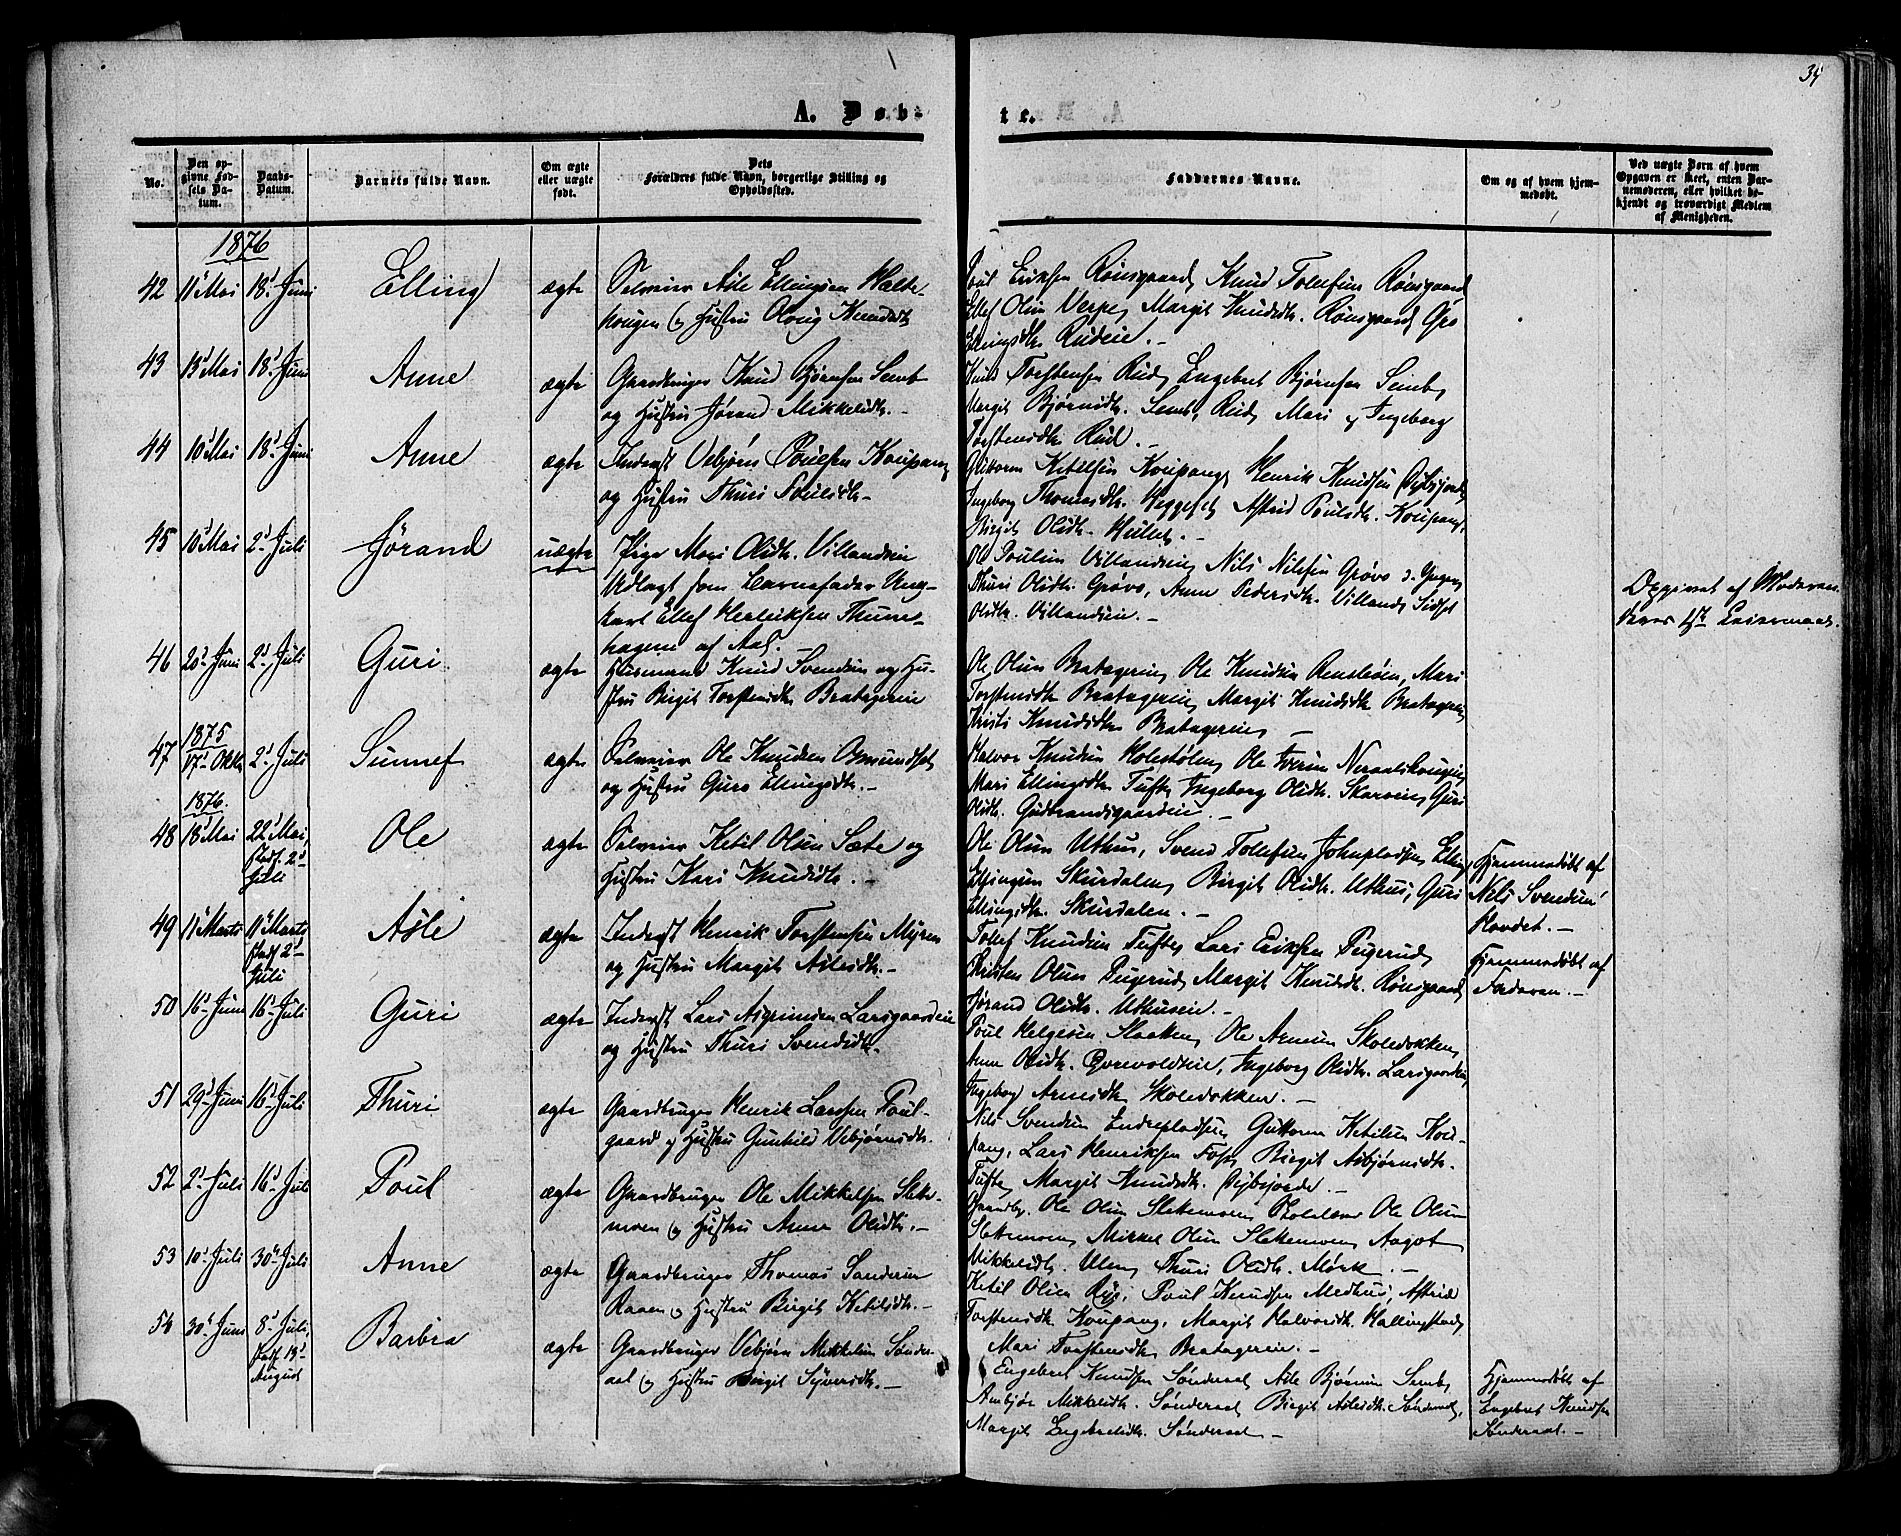 35
A. Døb-
te.
No.
Den op-
givne Fød-
sels Da-
tum.
Daabs-
Datum.
Barnets fulde Navn.
Om ægte
eller uægte
født.
Dets
Forældres fulde Navn, borgerlige Stilling og
Opholdssted.
Faddernes Navne.
Om og af hvem hjem-
medøbt.
Ved uægte Børn af hvem
Opgaven er skeet, enten Bar-
nemoderen, eller hvilket be-
kjendt og troværdigt Medlem
af Menigheden.
1876
42 11' Mai 18' Juni Elling ægte Selveier Asle Ellingsen Halde-
haugen og Hustru Knudsdtr
Poul Eriksen Rønsgaard Knud Tollefsen Rønsgaard
Ellef Olsen Verpe, Margit Knudsdtr. Rønsgaard Gro
Ellingsdtr. Rudeie. —
43 13' Mai 18' Juni Anne ægte Gaardbruger Knud Bjørnsen Semb
og Hustru Jørand Mikkelsdtr. —
Knud Torstensen Rud, Engebret Bjørnsen Semb,
Margit Bjørnsdtr. Semb, Rud, Mari og Ingeborg
Torstensdtr. Rud. —
44 10' Mai 18' Juni Anne ægte Inderst Vebjørn Poulsen Koupang
og Hustru Thuri Poulsdtr —
Guttorm Ketilsen Koupang, Henrik Knudsen
Ingeborg Thomasdtr. Astrid Poulsdtr. Koupang,
Birgit Olsdtr. —
45 10' Mai 2' Juli Jørand uægte Pige Mari Olsdtr. Villandseie
Udlagt som Barnefader Ung-
karl Ellef Henriksen Thune-
hagen af Aal. —
Ole Poulsen Villandseie, Nils Nilsen Grøvo
Thuri Olsdtr. Grøvo, Anne Pedersdtr. Villand, Sidsel
Olsdtr. Villandseie. —
Opgivet af Moderen.
Leiermaal.
46 20' Juni 2' Juli Guri ægte Husmand Knud Svendsen og Hu-
stru Birgit Torstensdtr. Bratageeie
Ole Olsen Ole Knudsen Mari
Torstensdtr. Margit Knudsdtr.
Kristi Knudsdtr. —
1875
47 17' Oktb. 2' Juli Sunnef ægte Selveier Ole Knudsen
og Hustru Guro Ellingsdtr. —
Halvor Knudsen Ole Iversen
Mari Ellingsdtr. Tufte, Ingeborg Olsdtr. Guri
Olsdtr. Gudbrandsgaardeie. —
1876.
48 18' Mai 22' Mai,
stadf. 2'
Juli Ole ægte Selveier Ketil Olsen Sæte og
Hustru Kari Knudsdtr. —
Ole Olsen Uthus, Svend Tollefsen Johnpladsen, Elling
Ellingsen Skurdalen, Birgit Olsdtr. Uthus, Guri
Ellingsdtr. Skurdalen. —
Hjemmedøbt af
Nils Svendsen
Hovdet. —
49 11' Marts 11' Marts
stadf 2'
Juli Asle ægte Inderst Henrik Torstensen Myren
og Hustru Margit Aslesdtr. —
Tollef Knudsen Tufte, Lars Eriksen
Kristen Olsen Margit Knudsdtr. Rønsgaard
Jørand Olsdtr. Uthuseie. —
Hjemmedøbt af
Faderen. —
50 16' Juni 16' Juli Guri ægte Inderst Lars Asgrimsen Larsgaardeie
og Hustru Thuri Svendsdtr. —
Poul Helgesen Ole Arnesen Skoledokken,
Anne Olsdtr. Ingeborg Olsdtr. Larsgaardeie,
Ingeborg Arnesdtr. Skoledokken. —
51 29' Juni 16' Juli Thuri ægte Gaardbruger Henrik Larssen Poul-
gaard og Hustru Gunhild Vebjørnsdtr.
Nils Svendsen Endrepladsen, Guttorm Ketilsen Kou-
pang, Lars Henriksen Foss, Birgit Asbjørnsdtr.
Tufte, Margit Knudsdtr. —
52 2' Juli 16' Juli Poul ægte Gaardbruger Ole Mikkelsen Sleke-
moen og Hustru Anne Olsdtr. —
Gaardbr. Ole Olsen Slekemoen, Ole Olsen
Slekemoen, Mikkel Olsen Slekemoen, Aagot
Mikkelsdtr. Thuri Olsdtr. Mørk. —
53 10' Juli 30' Juli Anne ægte Gaardbruger Thomas Sandersen
Raaen og Hustru Birgit Ketilsdtr. —
Ketil Olsen Poul Knudsen Medhus, Astrid
Torstensdtr. Koupang, Margit Halvorsdtr. Hallingstad,
Mari Torstensdtr. —
54 30' Juni 8' Juli,
stadf. 13'
August Barbra ægte Gaardbruger Vebjørn Mikkelsen Sønder-
aal og Hustru Birgit Syversdtr. —
Engebret Knudsen Sønderaal, Asle Bjørnsen Semb,
Ambjør Mikkelsdtr. Sønderaal, Birgit Aslesdtr. Sønderaal,
Margit Engebretsdtr. Sønderaal —
Hjemmedøbt af
Engebret Knudsen
Sønderaal. —